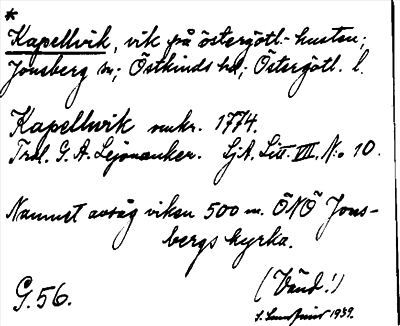 *
Kapellvik, vik på östergötl.-kusten;
Jonsberg sn; Östkinds hd; Östergötl. l.
Kapellwik omkr. 1774.
Trol. G. A. Lejonanker. SjA. Litt. VII. N:o 10.
Namnet avsåg viken 500 m. ÖNÖ Jons-
bergs kyrka.
(Vänd!)
G.56.
1939.